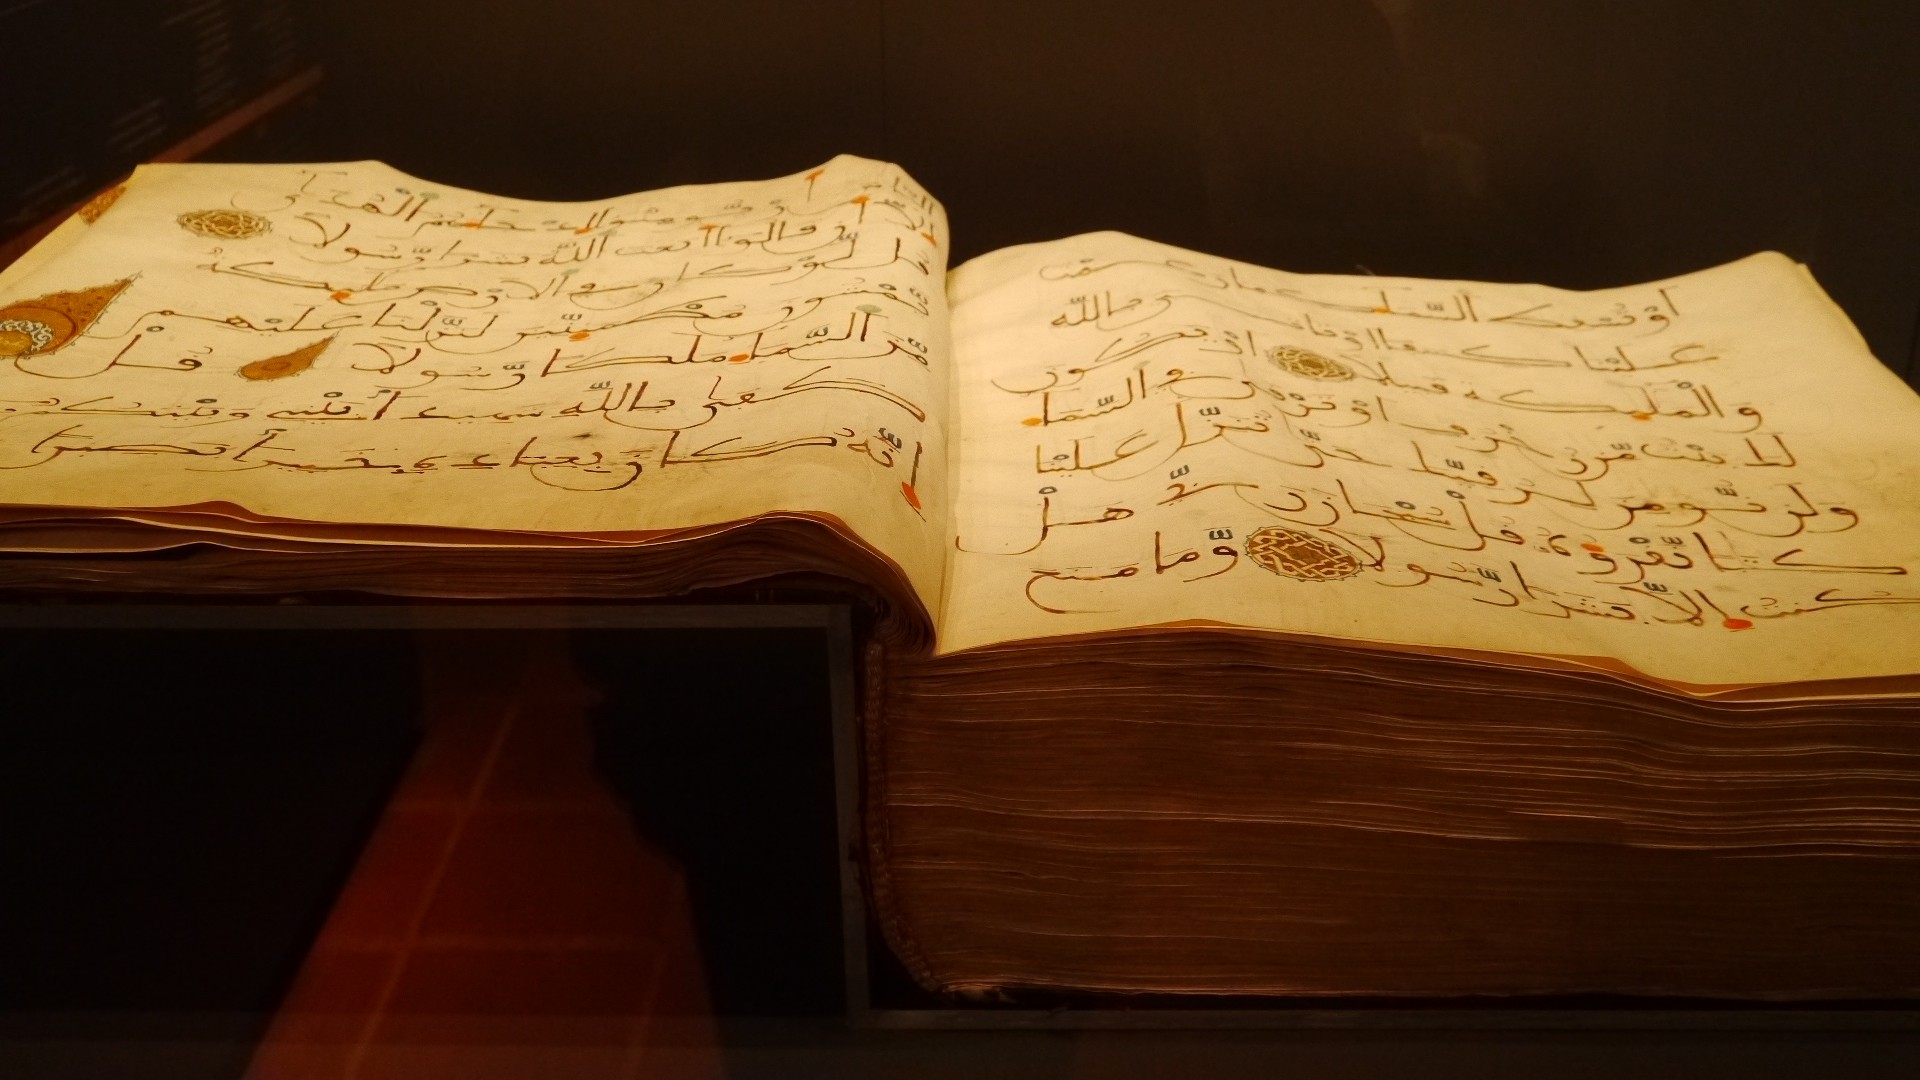 أو تسقط السماء كما زعمت
علينا كسفا أو تأتي بالله
والملئكة قبيلا أو يكون
لك بيت من زخرف أو ترقى في السماء
ولن نؤمن لرقيك حتى تنزل علينا
كتابا نقرؤه قل سبحان ربي هل
كنت إلا بشرا رسولا وما منع
الناس أن يؤمنوا إذ جاءهم الهدى
إلا أن قالوا أبعث الله بشرا رسولا
قل لو كان في الأرض ملئكة
يمشون مطمئنين لنزلنا عليهم
من السماء ملكا رسولا قل
كفى بالله شهيدا بيني وبينكم
إنه كان بعباده خبيرا بصيرا